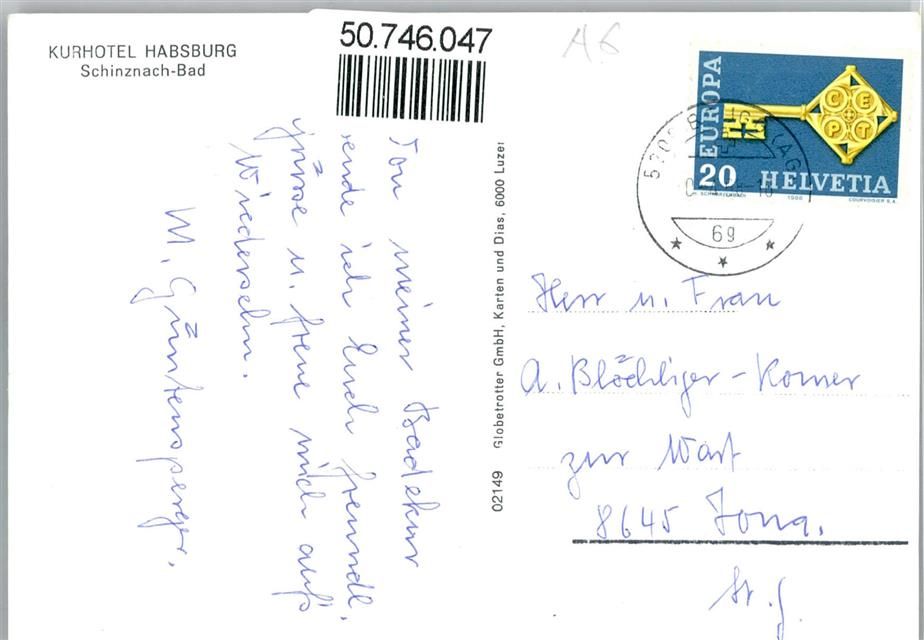 KURHOTEL HABSBURG
Schinznach-Bad
50.746.047
A6
Von meiner Badekur
sende ich Euch freundl.
Grüsse u. freue mich aufs
Wiedersehn.
M. Güntensperger.
02149 Globetrotter GmbH, Karten und Dias, 6000 Luzer
EUROPA
CEPT
20 HELVETIA
COURVOISIER S.A.
69
Herr u. Frau
A. Blöchliger-Komer
zur Wart
8645 Jona.
St. G.